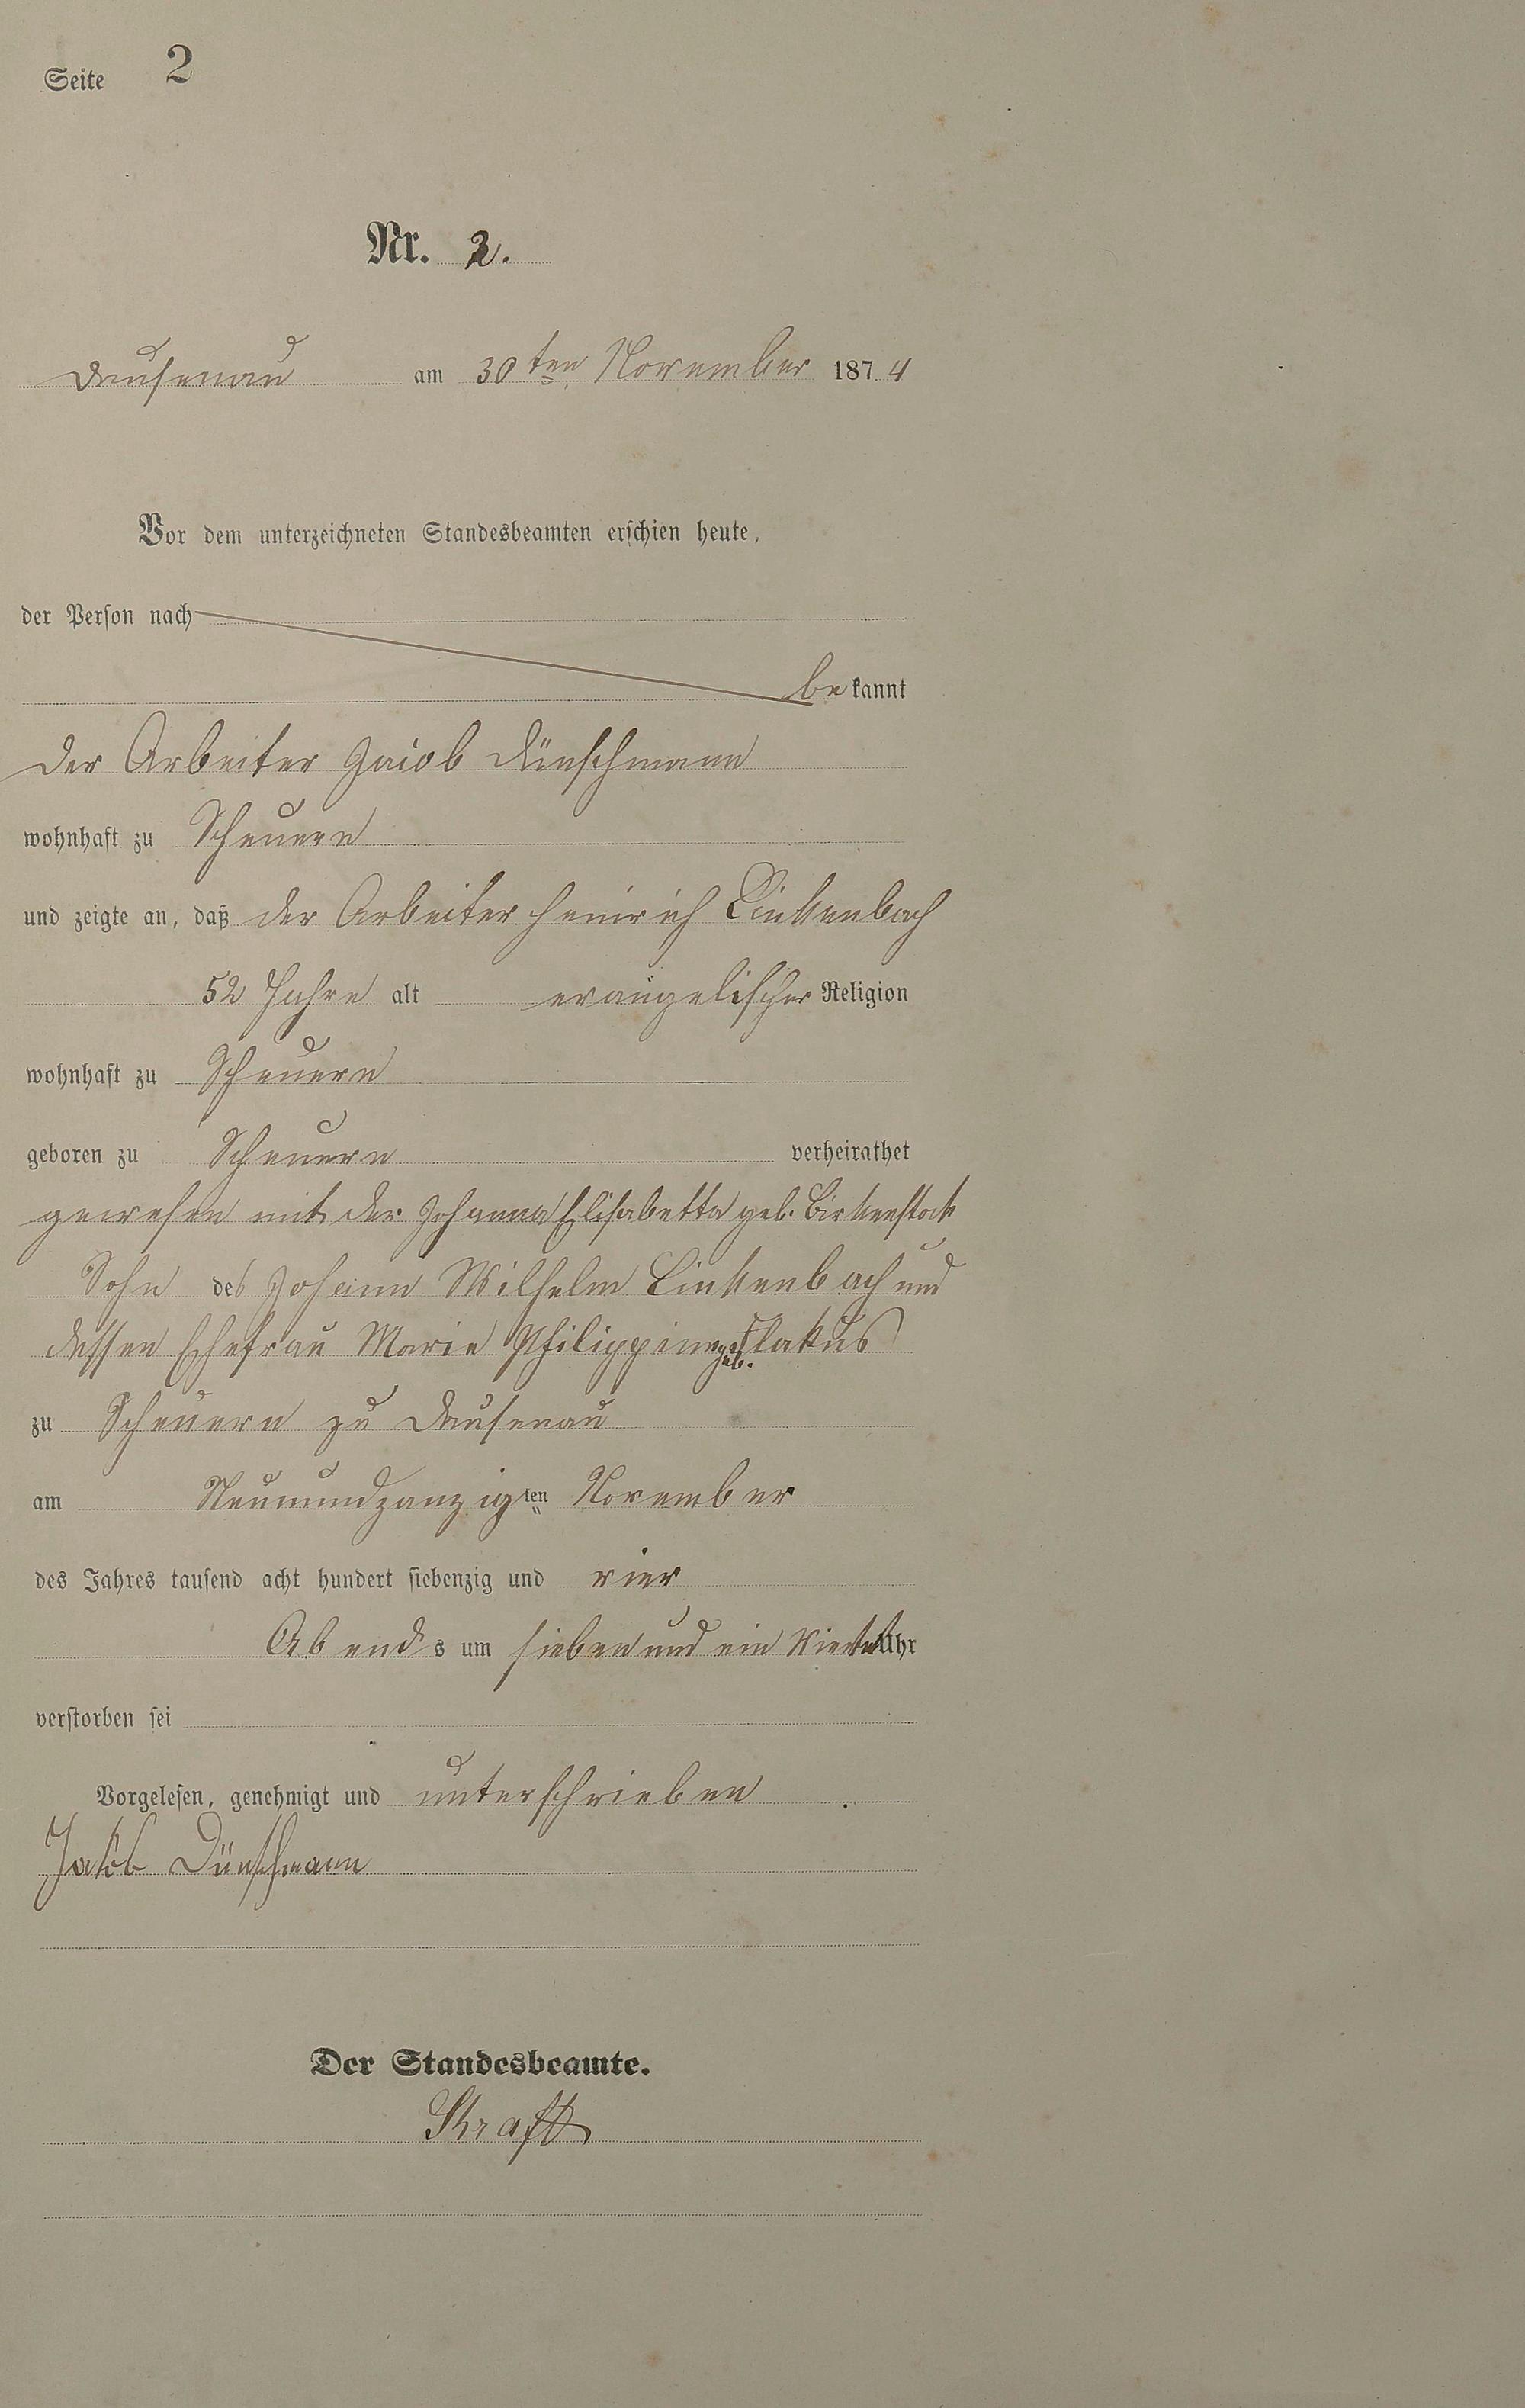 Seite 2
Nr. 2.
Dausenau am 30ten November 1874
Vor dem unterzeichneten Standesbeamten erschien heute,
der Person nach
bekannt
der Arbeiter Jacob Dünschmann
wohnhaft zu Scheuern
und zeigte an, daß der Arbeiter Heinrich Linkenbach
52 Jahre alt evangelischer Religion
wohnhaft zu Scheuern
geboren zu Scheuern verheirathet
gewesen mit der Johanna Elisabetta geb. Birkenstock
Sohn des Johann Wilhelm Linkenbach und
dessen Ehefrau Marie Philippine geb.
zu Scheuern zu Dausenau
am Neunundzanzigten November
des Jahres tausend acht hundert siebenzig und vier
Abends um sieben und ein Viertel Uhr
verstorben sei
Vorgelesen, genehmigt und unterschrieben
Jakob Dünschmann
Der Standesbeamte.
Kraft